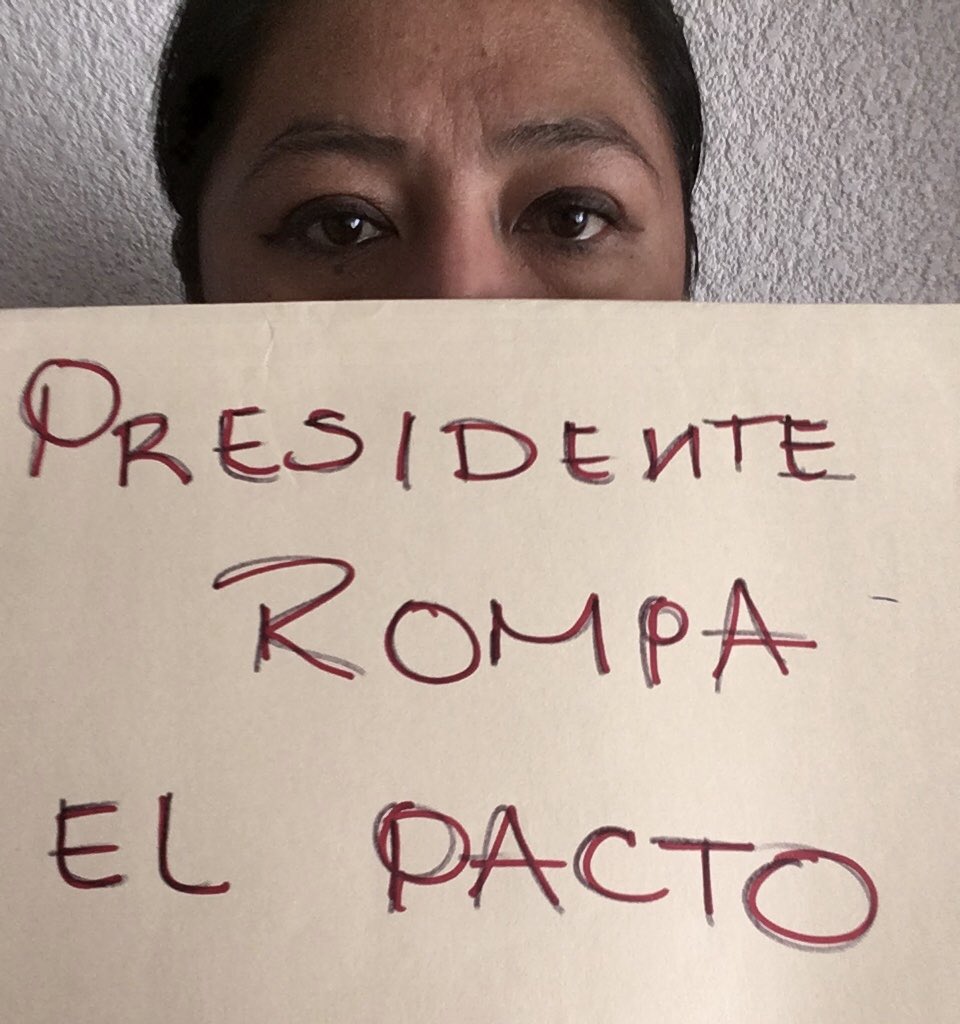 PRESIDENTE
ROMPA
EL PACTO